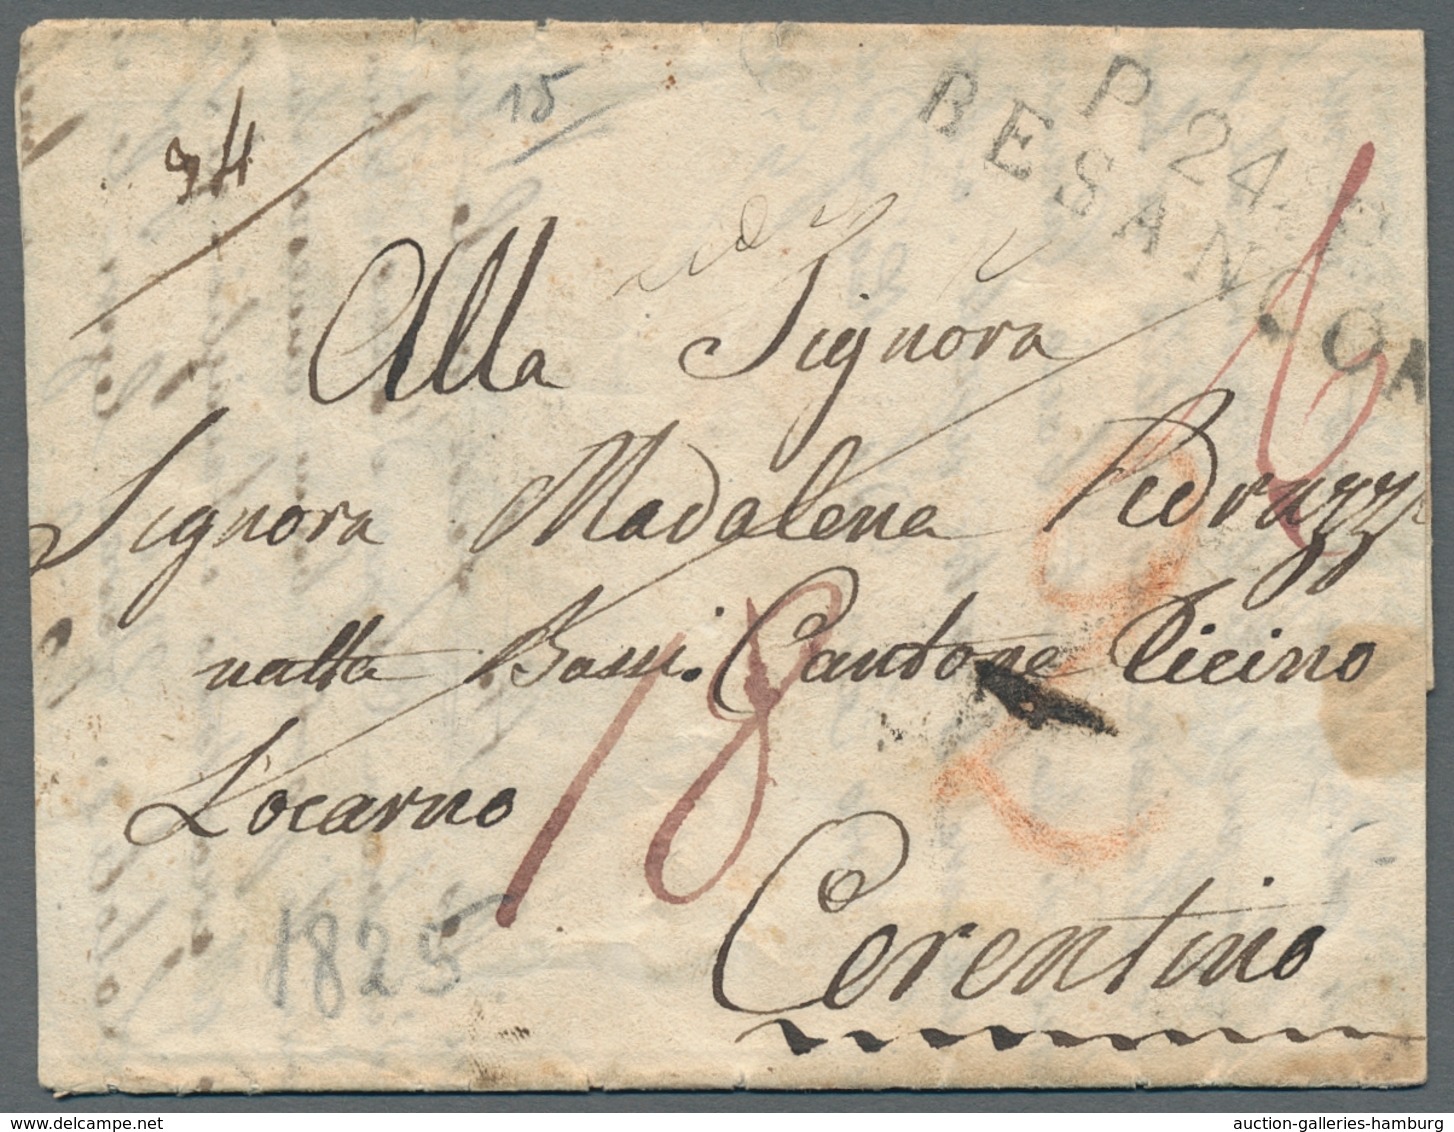 15
P 24 P
BESANCON
Alla Signora
Signora Madalena Pedrazzi
natta Bassi. Cantone Ticino
Locarno
18
Cerentino
1825
auction-galleries-hamburg